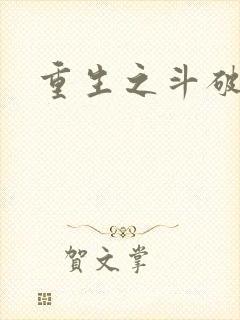 重生之斗破
賀文掌